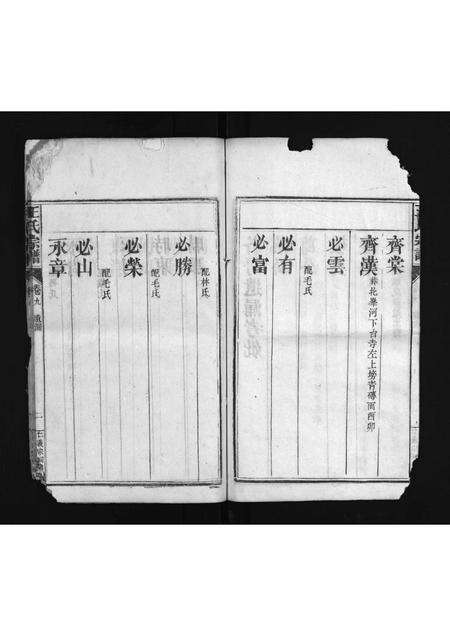 齊棠
齊漢
葬花巢河下台寺左上塝青磚面酉卯
必雲
必有
配毛氏
必富
必勝
配林氏
必榮
配毛氏
必山
配毛氏
永章
王氏宗譜
卷九